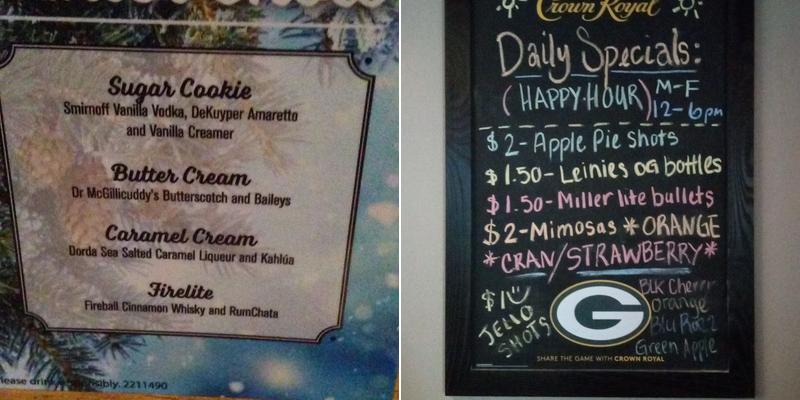 Sugar Cookie
Smirnoff Vanilla Vodka, DeKuyper Amaretto
and Vanilla Creamer
Butter Cream
Dr McGillicuddy's Butterscotch and Baileys
Caramel Cream
Dorda Sea Salted Caramel Liqueur and Kahlúa
Firelite
Fireball Cinnamon Whisky and RumChata
2211490
Crown Royal
Daily Specials:
(HAPPY HOUR) M-F
12-6pm
$2- Apple Pie shots
$1.50- Leinies OG bottles
$1.50- Miller lite bullets
$2- Mimosas *ORANGE
*CRAN/STRAWBERRY*
$1
JELLO
SHOTS
G
Blk Cherry
Orange
Blu Razz
Green Apple
SHARE THE GAME WITH CROWN ROYAL